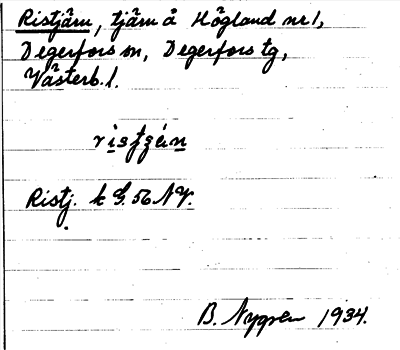 Ristjärn, tjärn å Högland nr 1,
Degerfors sn, Degerfors tg,
Västerb. l.
Ristj. k G. 56 NV.
B. Nygren 1934.